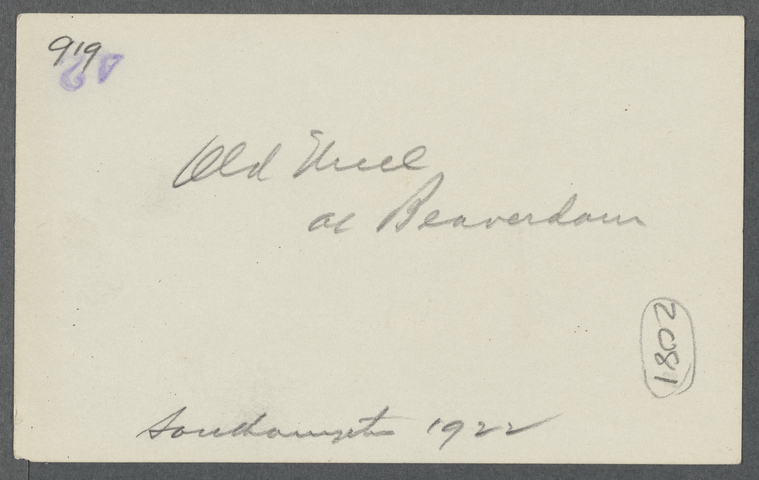 919
Old Mill
at Beaverdam
1802
Southampton 1922